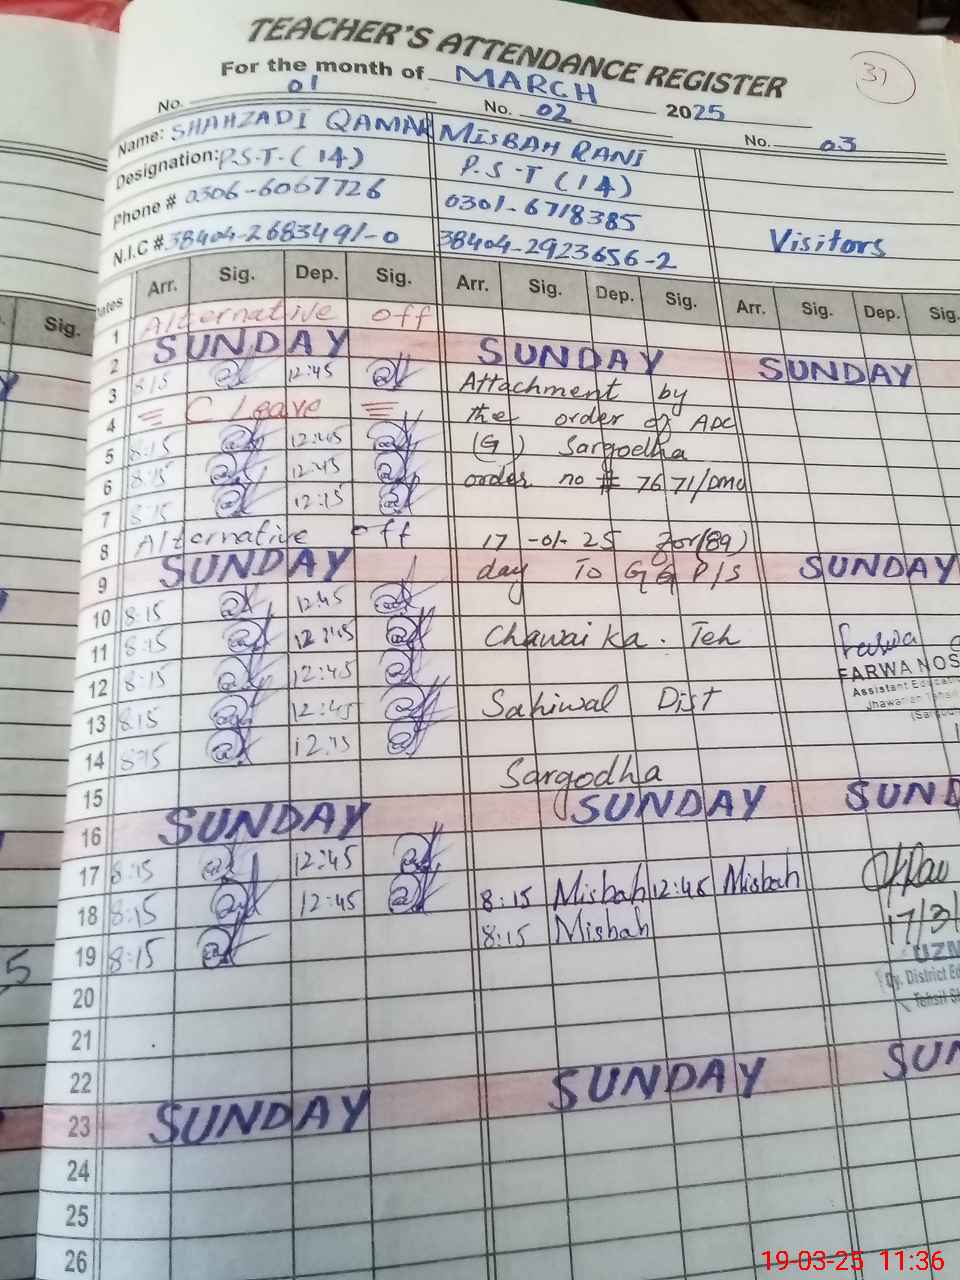 TEACHER'S ATTENDANCE REGISTER
37
For the month of MARCH 2025
No. 01 No. 02 No. 03
Name: SHAHZADI QAMAR MISBAH RANI
Designation: P.S.T. (14) P.S.T (14)
Phone # 0306-6067726 0301-6718385
N.I.C #. 38404-2683491-0 38404-2923656-2 Visitors
Dates Arr. Sig. Dep. Sig. Arr. Sig. Dep. Sig. Arr. Sig. Dep. Sig.
1 Alternative off
2 SUNDAY SUNDAY SUNDAY
3 8:15 12:45 Attachment by
4 C Leave the order of ADC
5 8:15 12:45 (G) Sargodha
6 8:15 12:45 order no # 7671/
7 8:15 12:15
8 Alternative off 17-01-25 for (89)
9 SUNDAY day To GG P/S SUNDAY
10 8:15 12:45
11 8:15 12:45 Chawai ka. Teh Farwa
12 8:15 12:45 FARWA
Assistant
13 8:15 12:45 Sahiwal Dist
14 8:15 12:15
15 Sargodha
16 SUNDAY SUNDAY
17 8:15 12:45
18 8:15 12:45 8:15 Misbah 12:45 Misbah
19 8:15 8:15 Misbah 17/3/
Dy. District
20 Tehsil
21
22
23 SUNDAY SUNDAY
24
25
26
Sig.
19-03-25 11:36